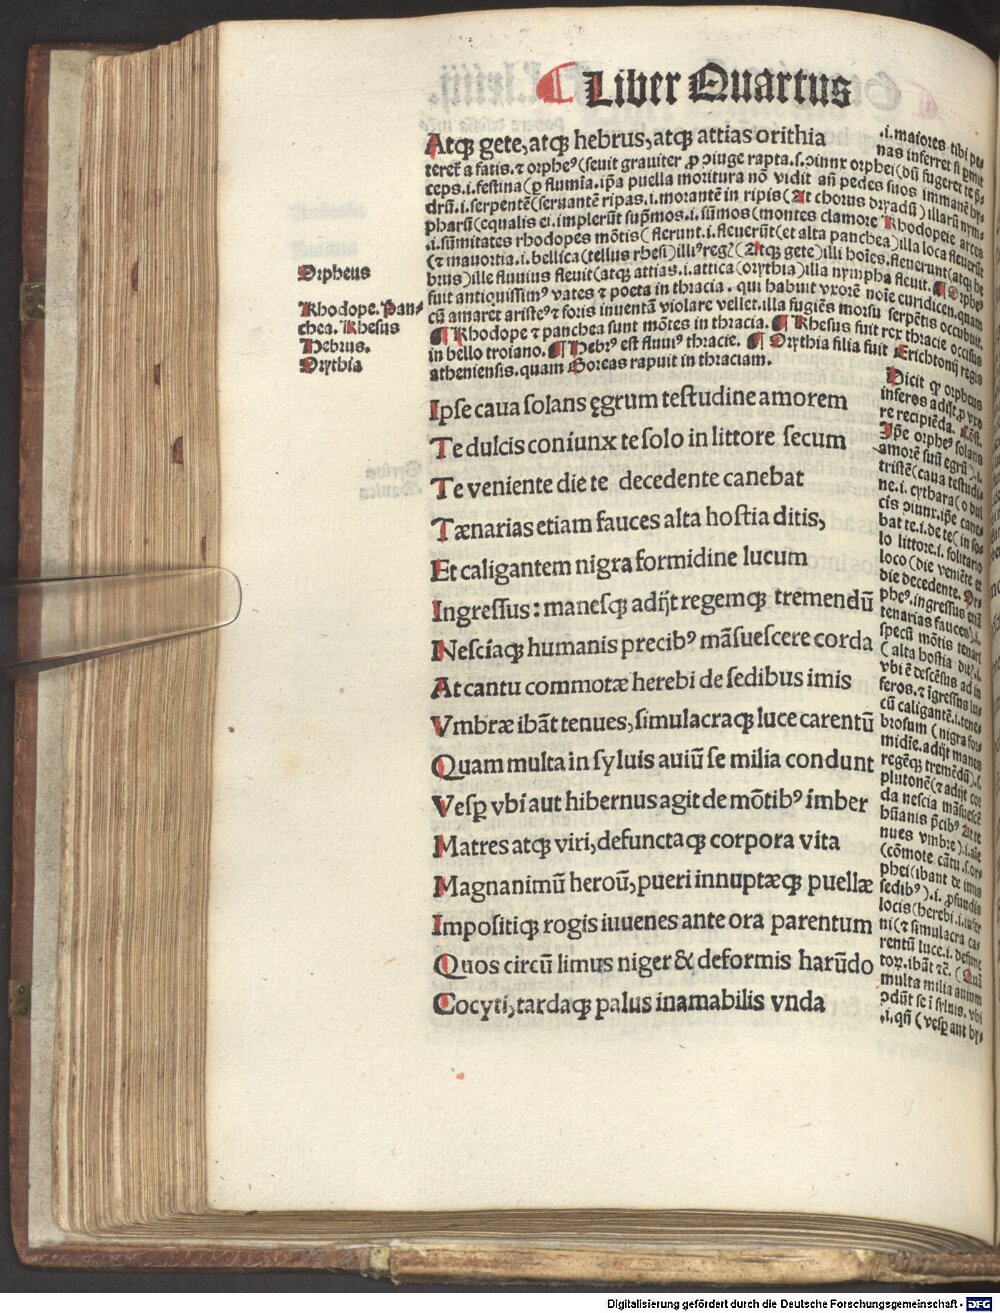 Liber Quartus
Atqꝫ gete, atqꝫ hebrus, atqꝫ attias orithia
Orpheus
Rhodope. Pan-
chea. Rhesus
Hebrus.
Orythia
tereť a fatis. ⁊ orpheꝰ (seuit grauiter ꝓ ↄiuge rapta. s. ↄiunx orphei (dū fugeret te p̄-
ceps .i. festina (ꝑ flumīa. ip̄a puella moritura nō vidit añ pedes suos immanē hy-
drū .i. serpentē (seruantē ripas .i. morantē in ripis (At chorus dryadū) illarū nym-
pharū (equalis ei. implerūt sup̄mos .i. sūmos (montes clamore Rhodopeie arces
.i. sūmitates rhodopes mōtis (flerunt .i. fleuerūt (et alta panchea) illa loca fleuerūt
(⁊ mauortia .i. bellica (tellus rhesi) illiꝰ reg (Atqꝫ gete) illi hoīes. fleuerunt (atqꝫ he
brus) ille fluuius fleuit (atqꝫ attias .i. attica (orythia) illa nympha fleuit. ¶ Orpheꝰ
fuit antiquissimꝰ vates ⁊ poeta in thracia. qui habuit vxorē noīe euridicen. quam
cū amaret aristeꝰ ⁊ foris inuentā violare vellet. illa fugiēs morsu serpētis occubuit.
¶ Rhodope ⁊ panchea sunt mōtes in thracia. ¶ Rhesus fuit rex thracie occisus
in bello troiano. ¶ Hebrꝰ est fluuiꝰ thracie. ¶ Orythia filia fuit Erichtonij regis
atheniensis. quam Boreas rapuit in thraciam.
Ipse caua solans ęgrum testudine amorem
Te dulcis coniunx te solo in littore secum
Te veniente die te decedente canebat
Tænarias etiam fauces alta hostia ditis,
Et caligantem nigra formidine lucum
Ingressus: manesqꝫ adijt regemqꝫ tremendū
Nesciaqꝫ humanis precibꝰ māsuescere corda
At cantu commotæ herebi de sedibus imis
Vmbræ ibāt tenues, simulacraqꝫ luce carentū
Quam multa in syluis auiū se milia condunt
Vesꝑ vbi aut hibernus agit de mōtibꝰ imber
Matres atqꝫ viri, defunctaqꝫ corpora vita
Magnanimū heroū, pueri innuptæqꝫ puellæ
Impositiqꝫ rogis iuuenes ante ora parentum
Quos circū limus niger & deformis harūdo
Cocyti, tardaqꝫ palus inamabilis vnda
.i. maiores tibi pe
nas inferret si
Dicit ꝙ orpheus
inferos adijt ꝓ vxo
re recipiēda.
Ip̄e orpheꝰ solans
amorē suū egrū) .i.
tristē (caua testudi-
ne .i. cythara (o dul
cis ↄiunx. ip̄e cane
bat te .i. de te (in so-
lo littore .i. solitario
loco (die veniēte et
die decedente. Or-
pheꝰ. ingressus etiā
tenarias fauces) .i.
specū mōtis tenari
(alta hostia ditꝭ .i.
vbi ē descēsus ad in
feros. ⁊ īgressus lu-
cū caligantē .i. tene
brosum (nigra for-
midīe. adijt manes
regēqꝫ tremēdū) .s.
plutonē (⁊ adijt cor
da nescia māsuescē
hūanis p̄cibꝰ At te
nues vmbre) .i. aīe
(cōmote cātu .s. or-
phei (ibant de imis
sedibꝰ) .i. ꝓfundis
locis (herebi .i. infer
ni (⁊ simulacra ca-
rentū luce .i. defunc
toꝝ. ibāt ⁊c. (Quā
multa milia auium
ↄdūt se ī syluis. vbi
.i. qñ (vesꝑ aut hy-
Digitalisierung gefördert durch die Deutsche Forschungsgemeinschaft - DFG